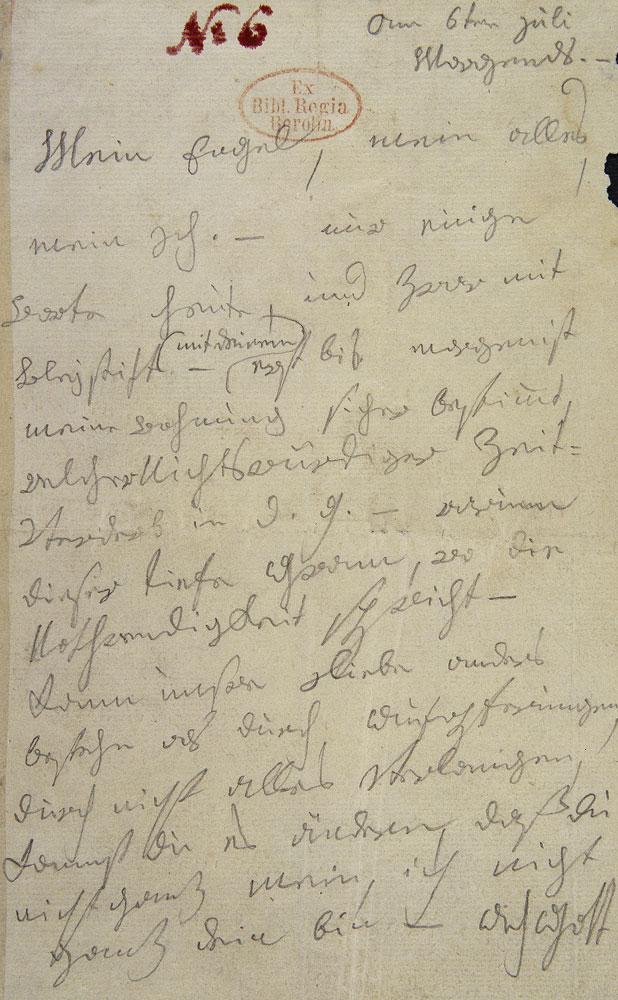 No 6
am 6ten juli
Morgends. –
Ex
Bibl. Regia
Berolin.
Mein Engel, mein alles,
mein Ich. – nur einige
worte heute, und zwar mit
Bleystift – (mit deinem)
erst bis morgen ist
meine wohnung sicher bestimmt,
welcher Nichtswürdiger Zeit-
Verderb in d. g. – warum
dieser tiefe Gram, wo die
Nothwendigkeit spricht –
Kann unsre Liebe anders
bestehn als durch Aufopferungen,
durch nicht alles Verlangen,
kannst du es ändern, daß du
nicht ganz mein, ich nicht
ganz dein bin – Ach Gott